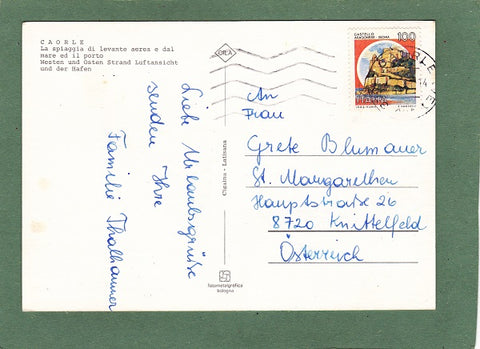 CAORLE
La spiaggia di levante aerea e dal
mare ed il porto
Westen und Osten Strand Luftansicht
und der Hafen
Liebe Urlaubsgrüße
senden Ihre
Familie Thalhammer
CASTELLO
ARAGONESE - ISCHIA
100
ITALIA
An
Frau
Grete Blumauer
St. Margarethen
Hauptstraße 26
8720 Knittelfeld
Österreich
fotometalgráfica
bologna